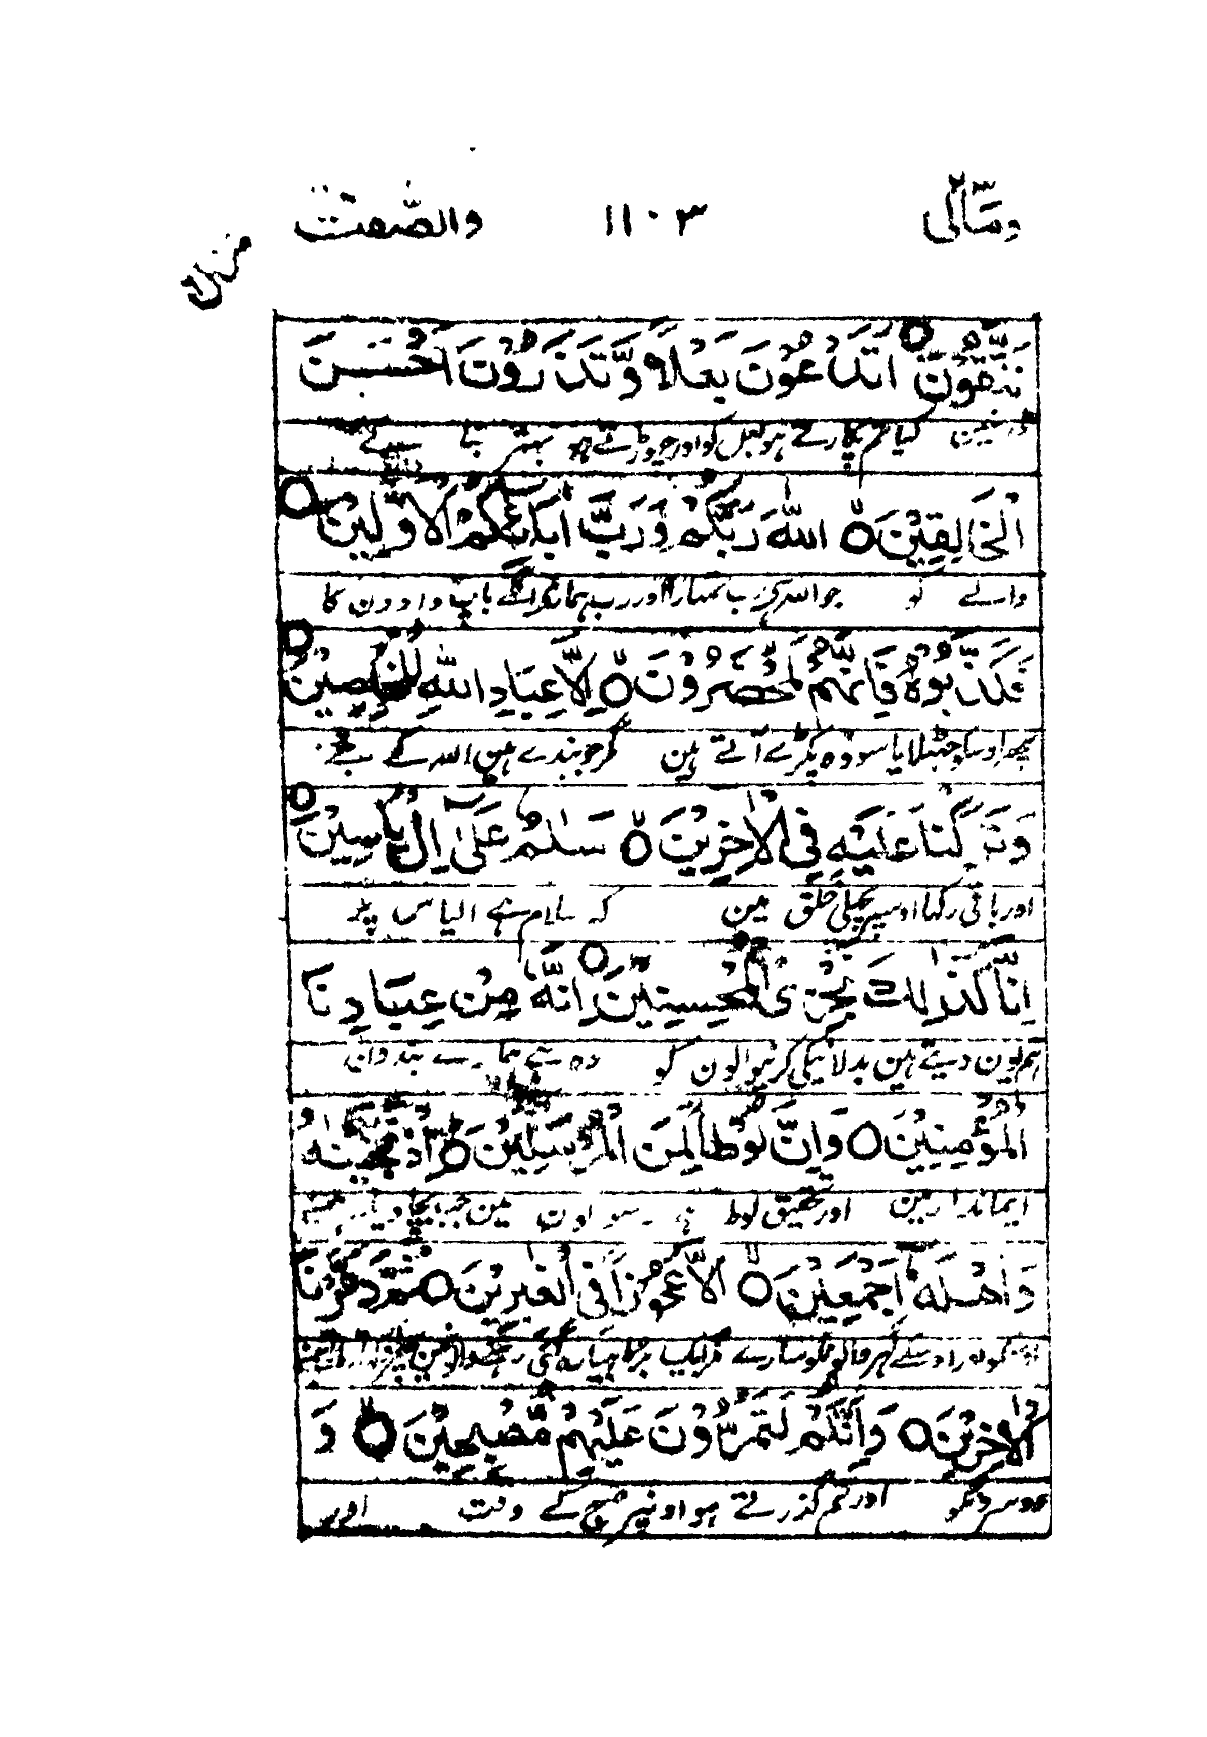 ومآلی ۱۱۰۳ والصّٰفّٰت
منزل
تَتَّقُوْنَ اَتَدْعُوْنَ بَعْلًا وَّتَذَرُوْنَ اَحْسَنَ
کیا تم پکارتے ہو بعل کو اور چھوڑتے ہو بہتر
الْخَالِقِيْنَ اللّٰهَ رَبَّكُمْ وَرَبَّ اٰبَآئِكُمُ الْاَوَّلِيْنَ
والے کو جو اللہ ہے رب تمہارا اور رب تمہارے اگلے باپ دادون کا
فَكَذَّبُوْهُ فَاِنَّهُمْ لَمُحْضَرُوْنَ اِلَّا عِبَادَ اللّٰهِ الْمُخْلَصِيْنَ
جھٹلایا سو وہ پکڑے آتے ہین مگر جو بندے ہین اللہ کے
وَتَرَكْنَا عَلَيْهِ فِي الْاٰخِرِيْنَ سَلٰمٌ عَلٰٓى اِلْ يَاسِيْنَ
اور باقی رکہا اوسپر پچھلی خلق مین کہ سلام ہے الیاس پر
اِنَّا كَذٰلِكَ نَجْزِى الْمُحْسِنِيْنَ اِنَّهٗ مِنْ عِبَادِنَا
ہم یون دیتے ہین بدلا نیکی کرنیوالون کو وہ ہے ہمارے بندون
الْمُؤْمِنِيْنَ وَاِنَّ لُوْطًا لَّمِنَ الْمُرْسَلِيْنَ اِذْ نَجَّيْنٰهُ
ایماندار مین اور تحقیق لوط ہے رسولون مین جب بچا دیا ہمنے
وَاَهْلَهٗ اَجْمَعِيْنَ اِلَّا عَجُوْزًا فِى الْغٰبِرِيْنَ ثُمَّ دَمَّرْنَا
اوسکو اور اوسکے گہر والونکو سارے مگر ایک بڑھیا رہ گئی
الْاٰخَرِيْنَ وَاِنَّكُمْ لَتَمُرُّوْنَ عَلَيْهِمْ مُّصْبِحِيْنَ وَ
دوسرونکو اور تم گذرتے ہو اونپر صبح کے وقت اور